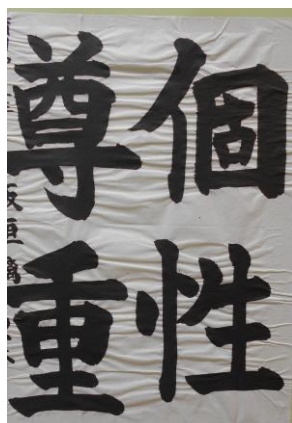 個性
尊重